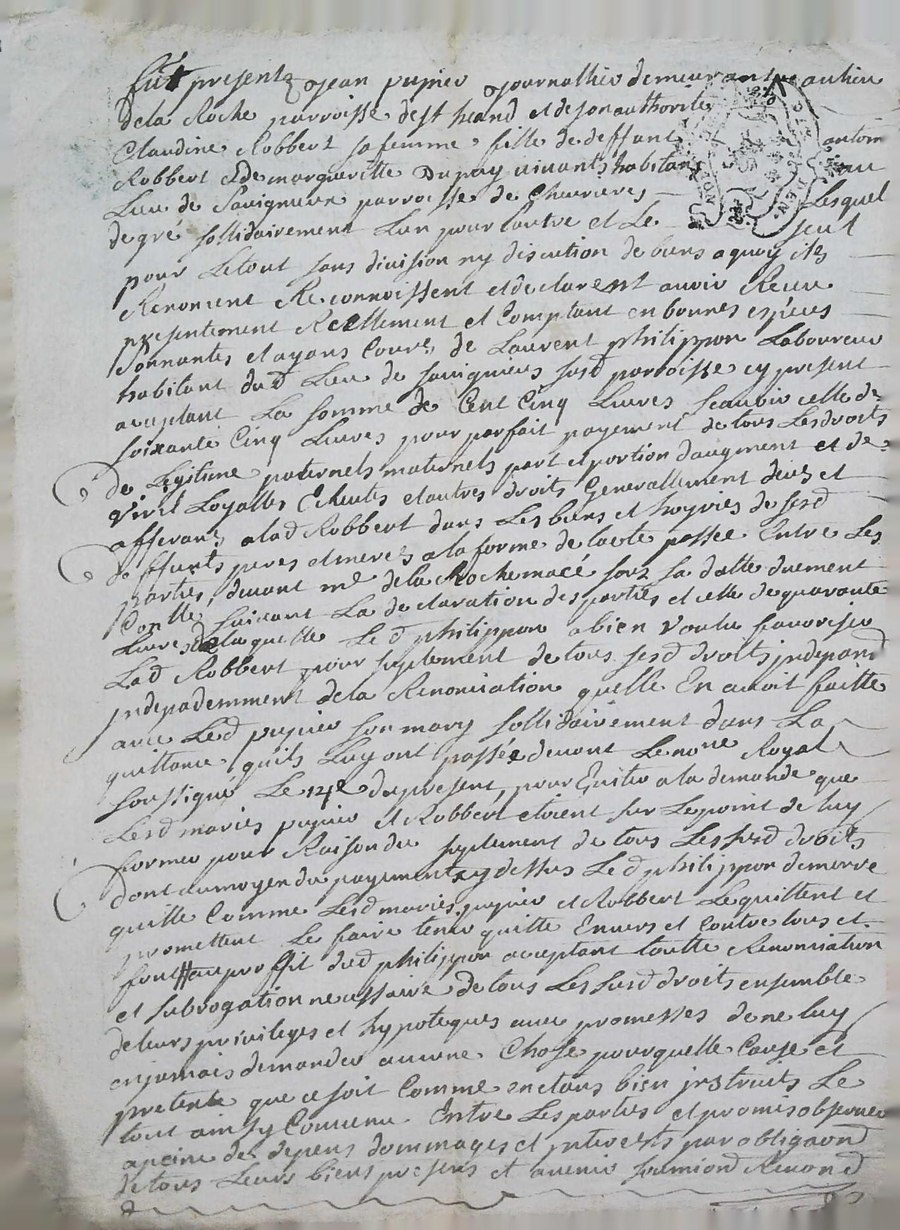 fut present jean pupier journallier demeurant au lieu
de la Roche parroisse de st heand et de son authorité
Claudine Robbert sa femme fille de deffunt antoin
Robbert et de margueritte Dupuy vivants habitans au
Lieu de Savigneux parroisse de Chevrieres Lesquel
de gré sollidairement Lun pour lautre et Le seul
pour Letout sans division ny discution de biens a quoy ils
Renoncent Reconnoissent et declarent avoir Receu
presentement Reellement et Comptant en bonnes espèces
sonnantes et ayans Cours de Laurent philippon Laboureur
habitant dud Lieu de savigneux susd parroisse cy present
acceptant La somme de Cent Cinq Livres scavoir celle de
soixante Cinq Livres pour parfait payement de tous Les droits
de Legitime paternels maternels part et portion daugment et de
viril Loyalles Echeutes et autres droits Generallement deus et
afferans a lad Robbert dans Les biens et hoyries de sesd
deffunts peres et meres a la forme de lacte passée Entre Les
parties devant me de la Rochemacé sous sa datte duement
Conllé suivant La declaration des parties et celle de quarante
Livres de laquelle Le d philippon a bien voulu favoriser
Lad Robbert pour suplement de tous sesd droits independ
independemment de la Renonciation quelle En avoit faitte
avec Led pupier son mary sollidairement dans La
quittance quils Luy ont passée devant Le nore Royal
soussigné Le 14e du present, pour Eviter a la demande que
Lesd mariés pupier et Robbert etoient sur Le point de luy
former pour Raison du suplement de tous Les susd droits
dont au moyen du payement cy dessus Le d philippon demeure
quitte Comme Lesd mariés pupier et Robbert Le quittent et
promettent Le faire tenir quitte Envers et Contre tous et
font au proffit dud philippon acceptant toutte Renonciation
et subrogation necessaire de tous Les susd droits ensemble
de leurs privileges et hypoteques avec promesses de ne luy
en jamais demander aucune Chose pour quelle Cause et
pretexte que ce soit Comme en etans bien instruits Le
tout ainsy Convenu Entre Les parties et promis observer
a peine de depens dommages et interests par obligaond
de tous Leurs biens presens et avenir soumiond Renond